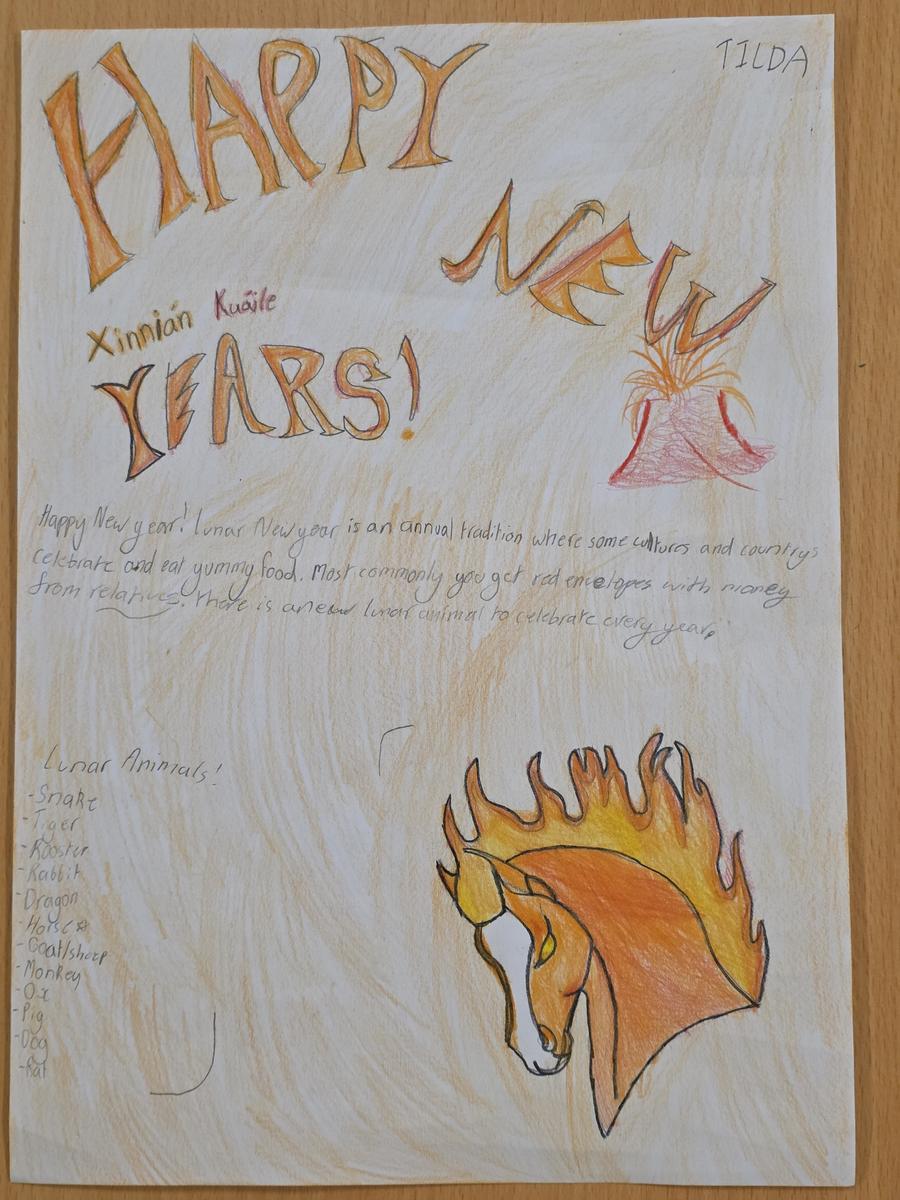 TILDA
HAPPY
NEW
Xinnián Kuáile
YEARS!
Happy New year! lunar New year is an annual tradition where some cultures and countrys
celebrate and eat yummy food. Most commonly you get red envelopes with money
from relatives. There is a new lunar animal to celebrate every year.
Lunar Animals!
-Snake
-Tiger
-Rooster
-Rabbit
-Dragon
-Horse☆
-Goat/sheep
-Monkey
-Ox
-Pig
-Dog
-Rat